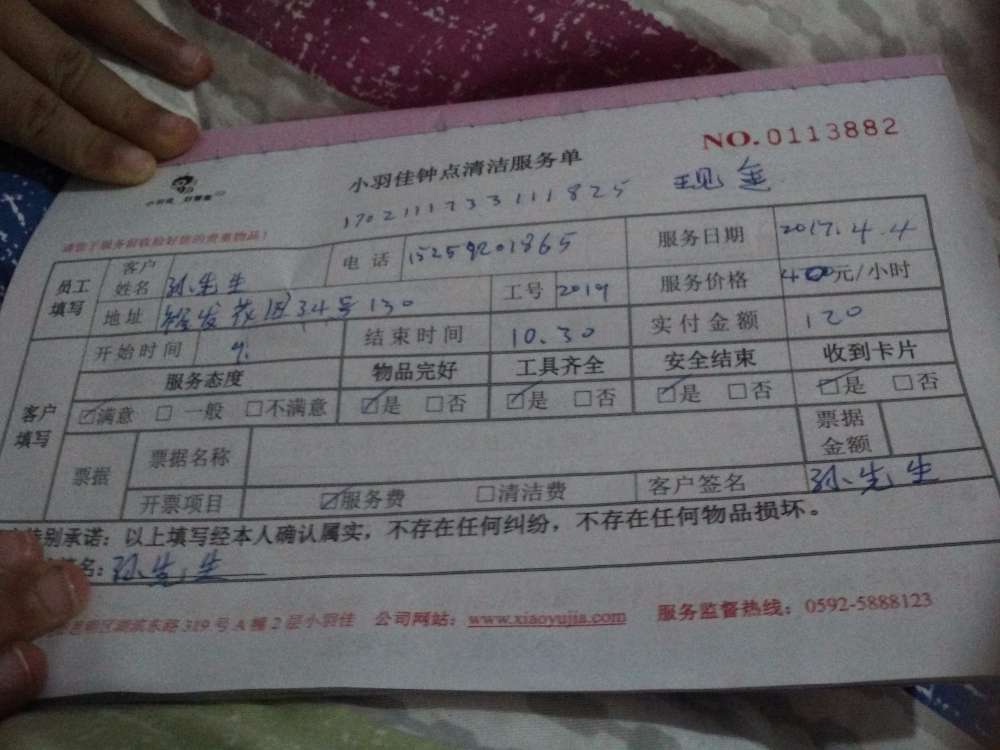 NO.0113882
小羽佳钟点清洁服务单
1702111733111825 现金
请您于服务前收捡好您的贵重物品！
员工填写 客户姓名 孙先生 电话 15259201865 服务日期 2017.4.4
地址 花园34号130 工号 2019 服务价格 40元/小时
客户填写 开始时间 9: 结束时间 10.30 实付金额 120
服务态度 物品完好 工具齐全 安全结束 收到卡片
☑满意 □一般 □不满意 ☑是 □否 ☑是 □否 ☑是 □否 ☑是 □否
票据 票据名称 票据金额
开票项目 ☑服务费 □清洁费 客户签名 孙先生
特别承诺：以上填写经本人确认属实，不存在任何纠纷，不存在任何物品损坏。
名：孙先生
区湖滨东路319号A幢2层小羽佳 公司网站：www.xiaoyujia.com 服务监督热线：0592-5888123